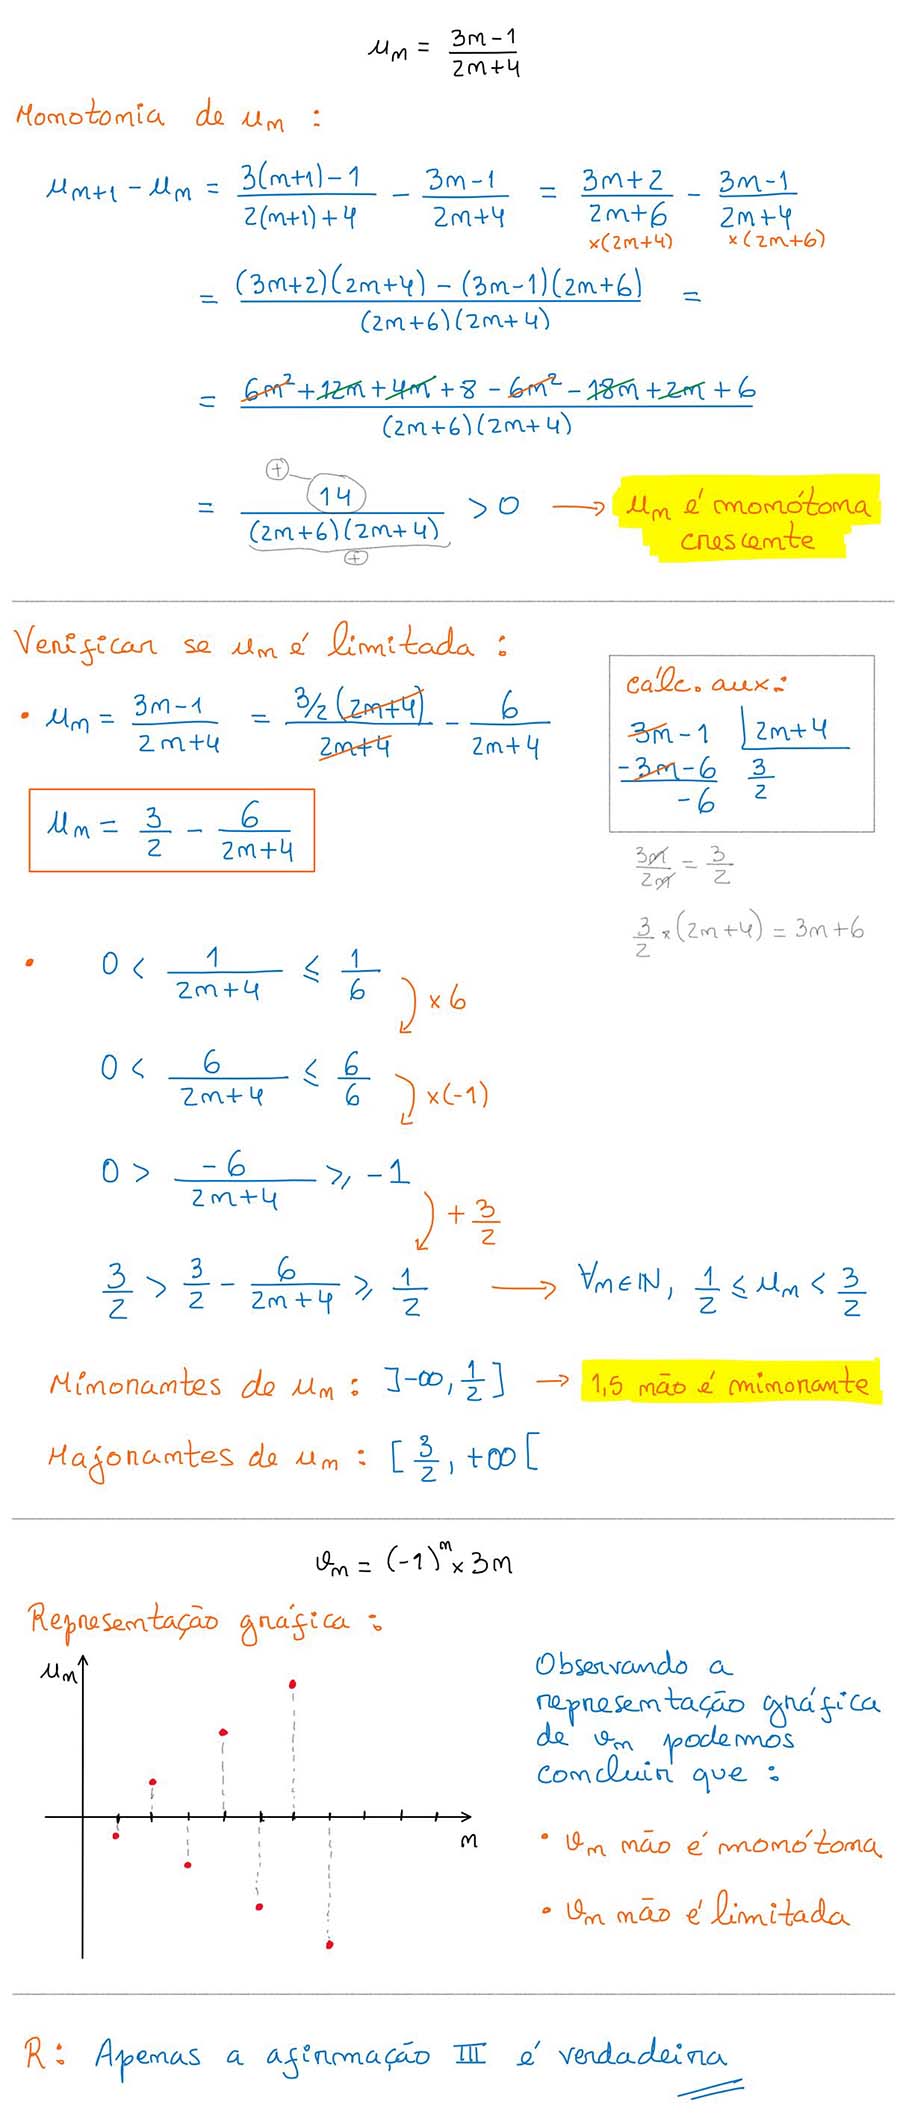 u_n = (3n-1)/(2n+4)
Monotonia de u_n :
u_{n+1} - u_n = (3(n+1)-1)/(2(n+1)+4) - (3n-1)/(2n+4) = (3n+2)/(2n+6) - (3n-1)/(2n+4)
×(2n+4) ×(2n+6)
= ((3n+2)(2n+4) - (3n-1)(2n+6))/((2n+6)(2n+4)) =
= (6n² + 12n + 4n + 8 - 6n² - 18n + 2n + 6)/((2n+6)(2n+4))
(+)
= 14/((2n+6)(2n+4)) > 0 → u_n é monótona
crescente
(+)
Verificar se u_n é limitada :
cálc. aux.:
• u_n = (3n-1)/(2n+4) = (3/2 (2n+4))/(2n+4) - 6/(2n+4)
3n-1 | 2n+4
-3n-6 3/2
-6
u_n = 3/2 - 6/(2n+4)
3n/2n = 3/2
3/2 × (2n+4) = 3n+6
• 0 < 1/(2n+4) ≤ 1/6
×6
0 < 6/(2n+4) ≤ 6/6
×(-1)
0 > -6/(2n+4) ≥ -1
+ 3/2
3/2 > 3/2 - 6/(2n+4) ≥ 1/2 → ∀n∈ℕ, 1/2 ≤ u_n < 3/2
Minorantes de u_n : ]-∞, 1/2] → 1,5 não é minorante
Majorantes de u_n : [3/2, +∞[
v_n = (-1)^n × 3n
Representação gráfica :
u_n
n
Observando a
representação gráfica
de v_n podemos
concluir que :
• v_n não é monótona
• v_n não é limitada
R: Apenas a afirmação III é verdadeira